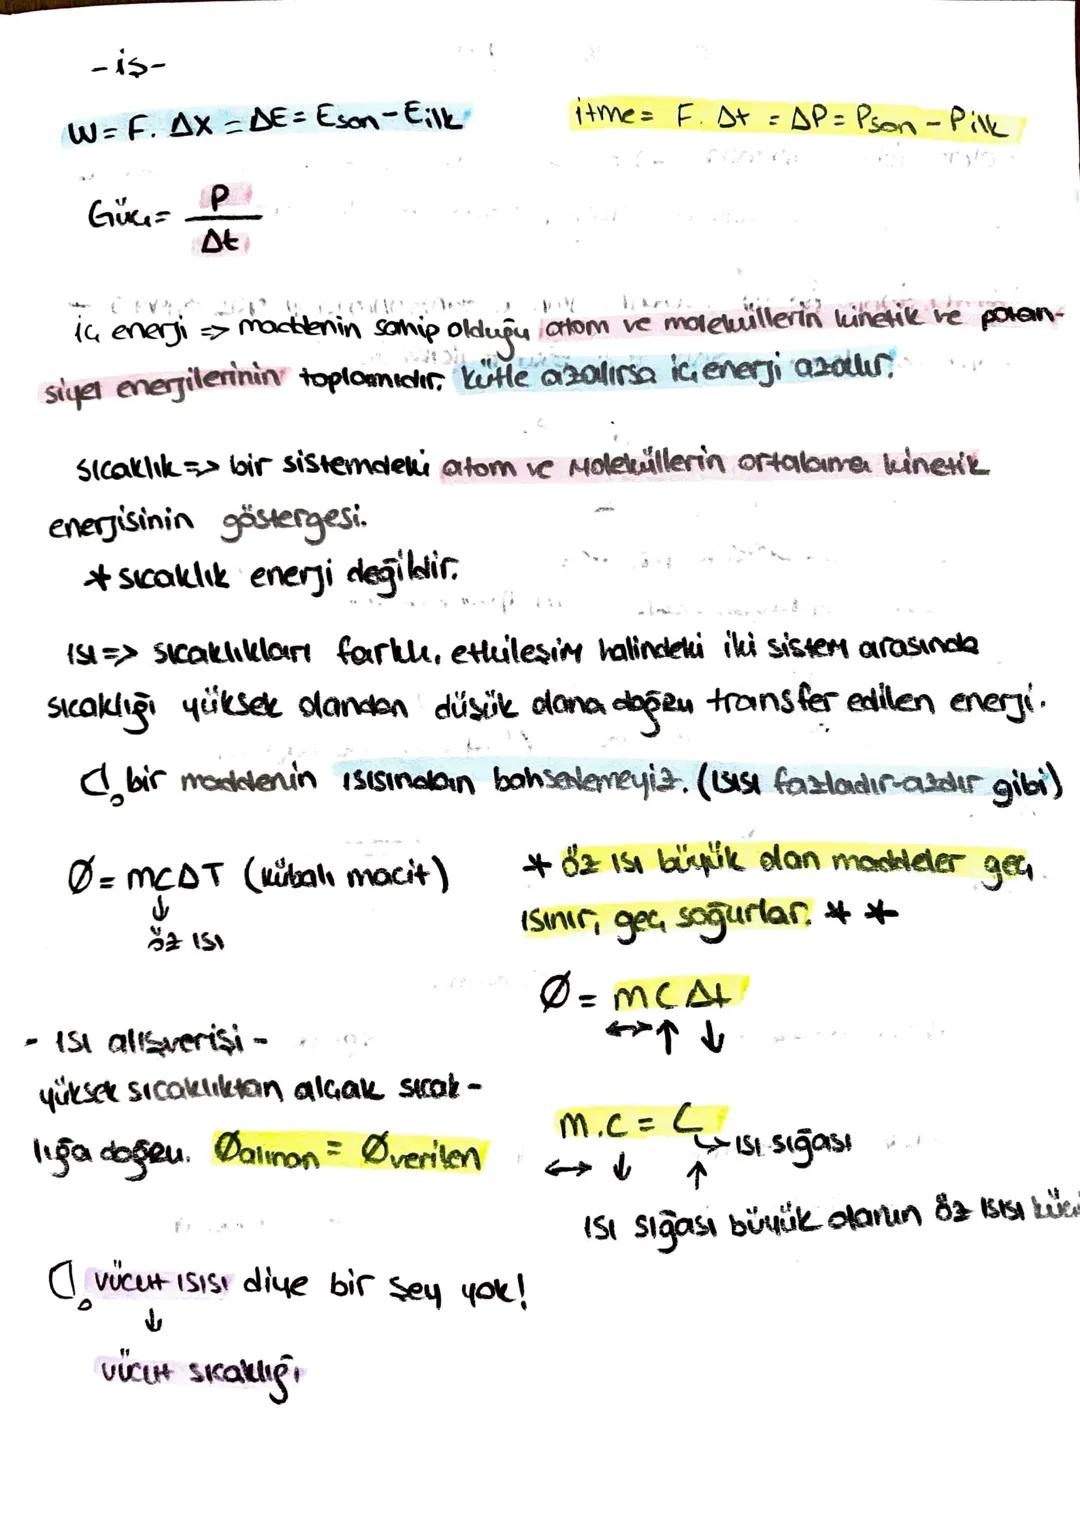 -iş-
W = F. Δx = ΔE = Eson - Eilk
itme = F. Δt = ΔP = Pson - Pilk
Güç = P
Δt
iç enerji => maddenin sahip olduğu atom ve moleküllerin kinetik ve potan-
siyel enerjilerinin toplamıdır. Kütle azalırsa iç enerji azalır.
sıcaklık => bir sistemdeki atom ve moleküllerin ortalama kinetik
enerjisinin göstergesi.
* sıcaklık enerji değildir.
ısı => sıcaklıkları farklı, etkileşim halindeki iki sistem arasında
sıcaklığı yüksek olandan düşük olana doğru transfer edilen enerji.
bir maddenin ısısından bahsedemeyiz. (ısısı fazladır-azdır gibi)
Ø = mcΔT (kübalı macit)
↓
öz ısı
* öz ısı büyük olan maddeler geç
ısınır, geç soğurlar. * *
Ø = m c Δt
↔ ↑ ↓
- ısı alışverişi -
yüksek sıcaklıktan alçak sıcak-
lığa doğru. Øalınan = Øverilen
m.c = C
↔ ↓ ↑ ↳ ısı sığası
ısı sığası büyük olanın öz ısısı
vücut ısısı diye bir şey yok!
↓
vücut sıcaklığı